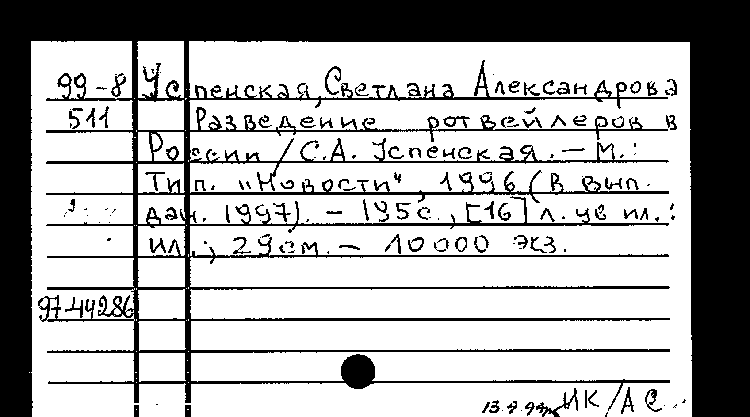 99-8 Успенская, Светлана Александрова
511 Разведение ротвейлеров в
России / С.А. Успенская. — М.:
Тип. "Новости", 1996 (в вып.
дан. 1997). — 195 с., [16] л. цв ил.:
ил.; 29 см. — 10000 экз.
97-44286
ИК/АС